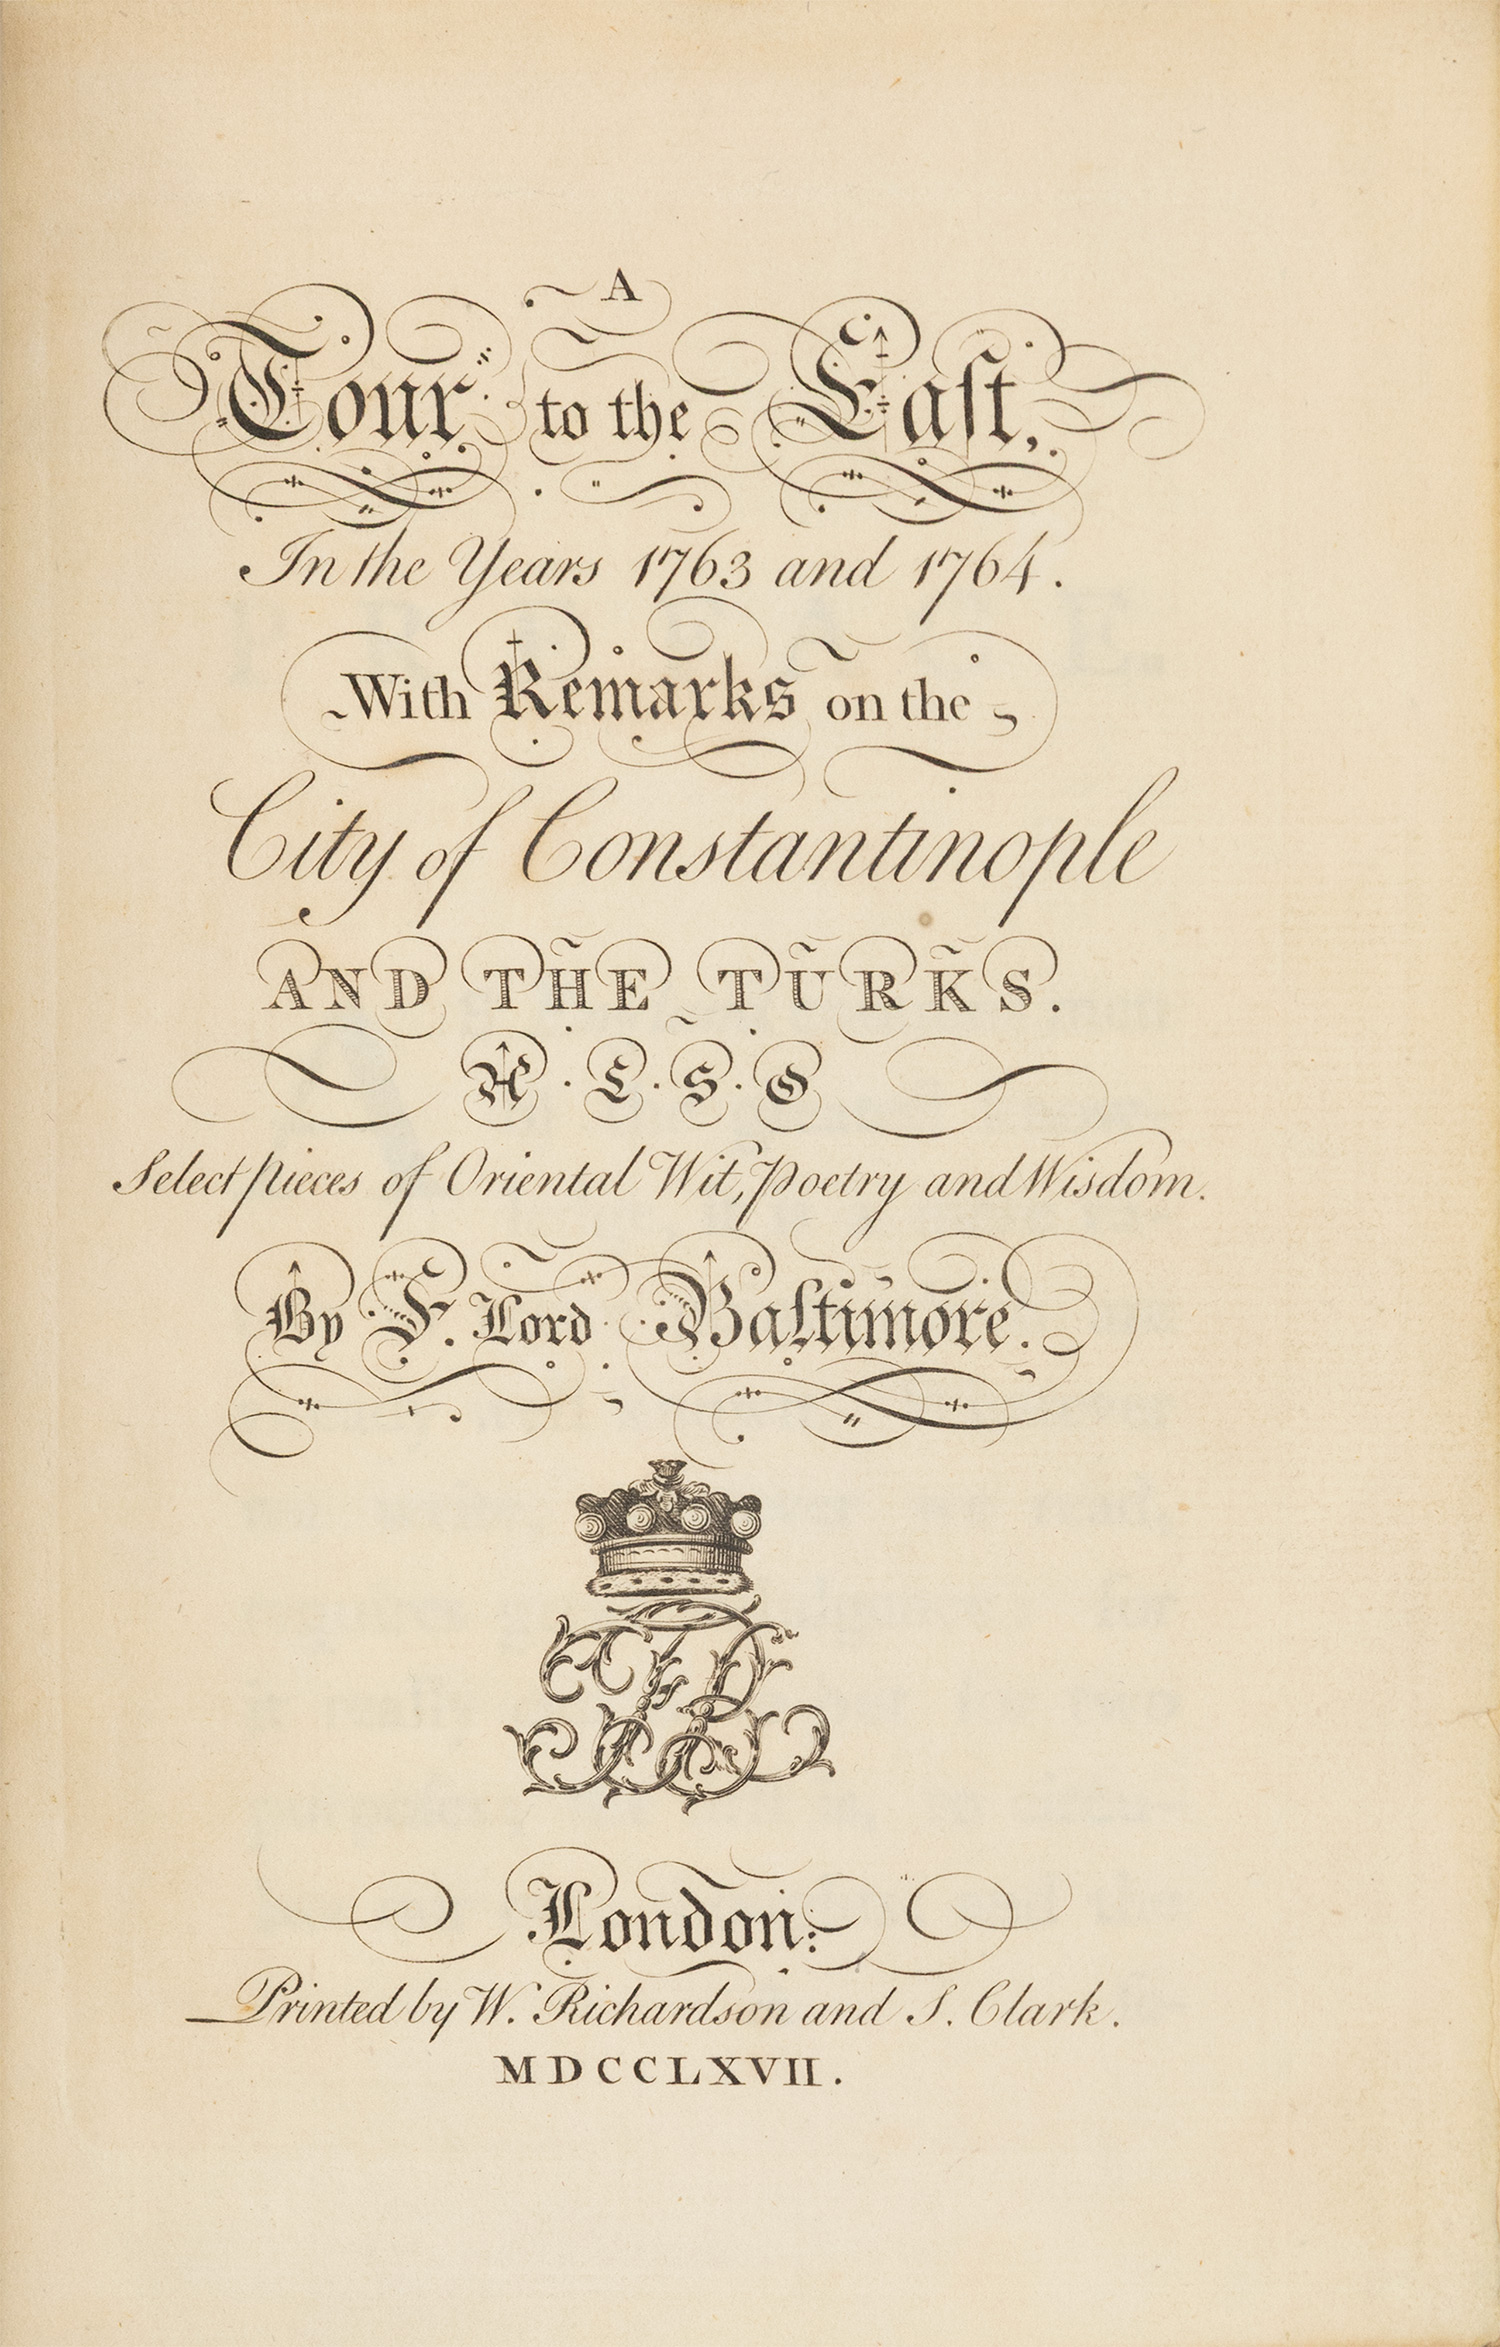 A
Tour to the Eaſt,
In the Years 1763 and 1764.
With Remarks on the
City of Constantinople
AND THE TURKS.
A.L.S.O
Select pieces of Oriental Wit, Poetry and Wisdom.
By F. Lord Baltimore.
London:
Printed by W. Richardson and S. Clark.
MDCCLXVII.